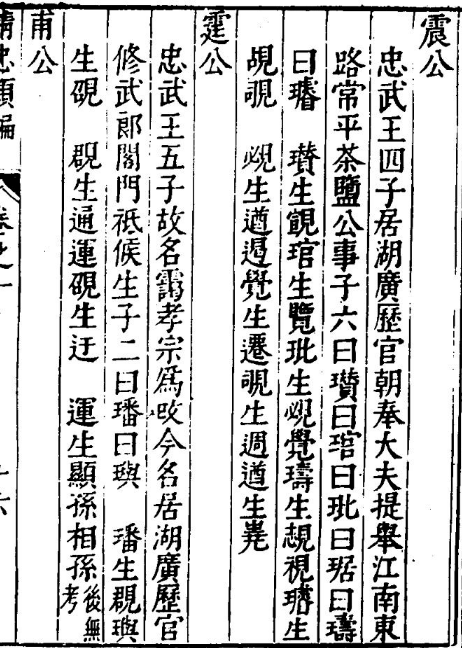 震公
忠武王四子居湖廣歷官朝奉大夫提舉江南東
路常平茶鹽公事子六曰瓚曰琯曰玭曰琚曰璹
曰璿 瓚生覾琯生覽玭生覙覺璹生覩視璿生
覘覞 覙生遒逿覺生遷覞生週遒生㠔
霆公
忠武王五子故名靄孝宗為改今名居湖廣歷官
修武郎閤門祗候生子二曰璠曰璵 璠生覠璵
生硯 覠生通運硯生迂 運生顯孫相孫後無考
甫公
精忠類編
卷之一
十六